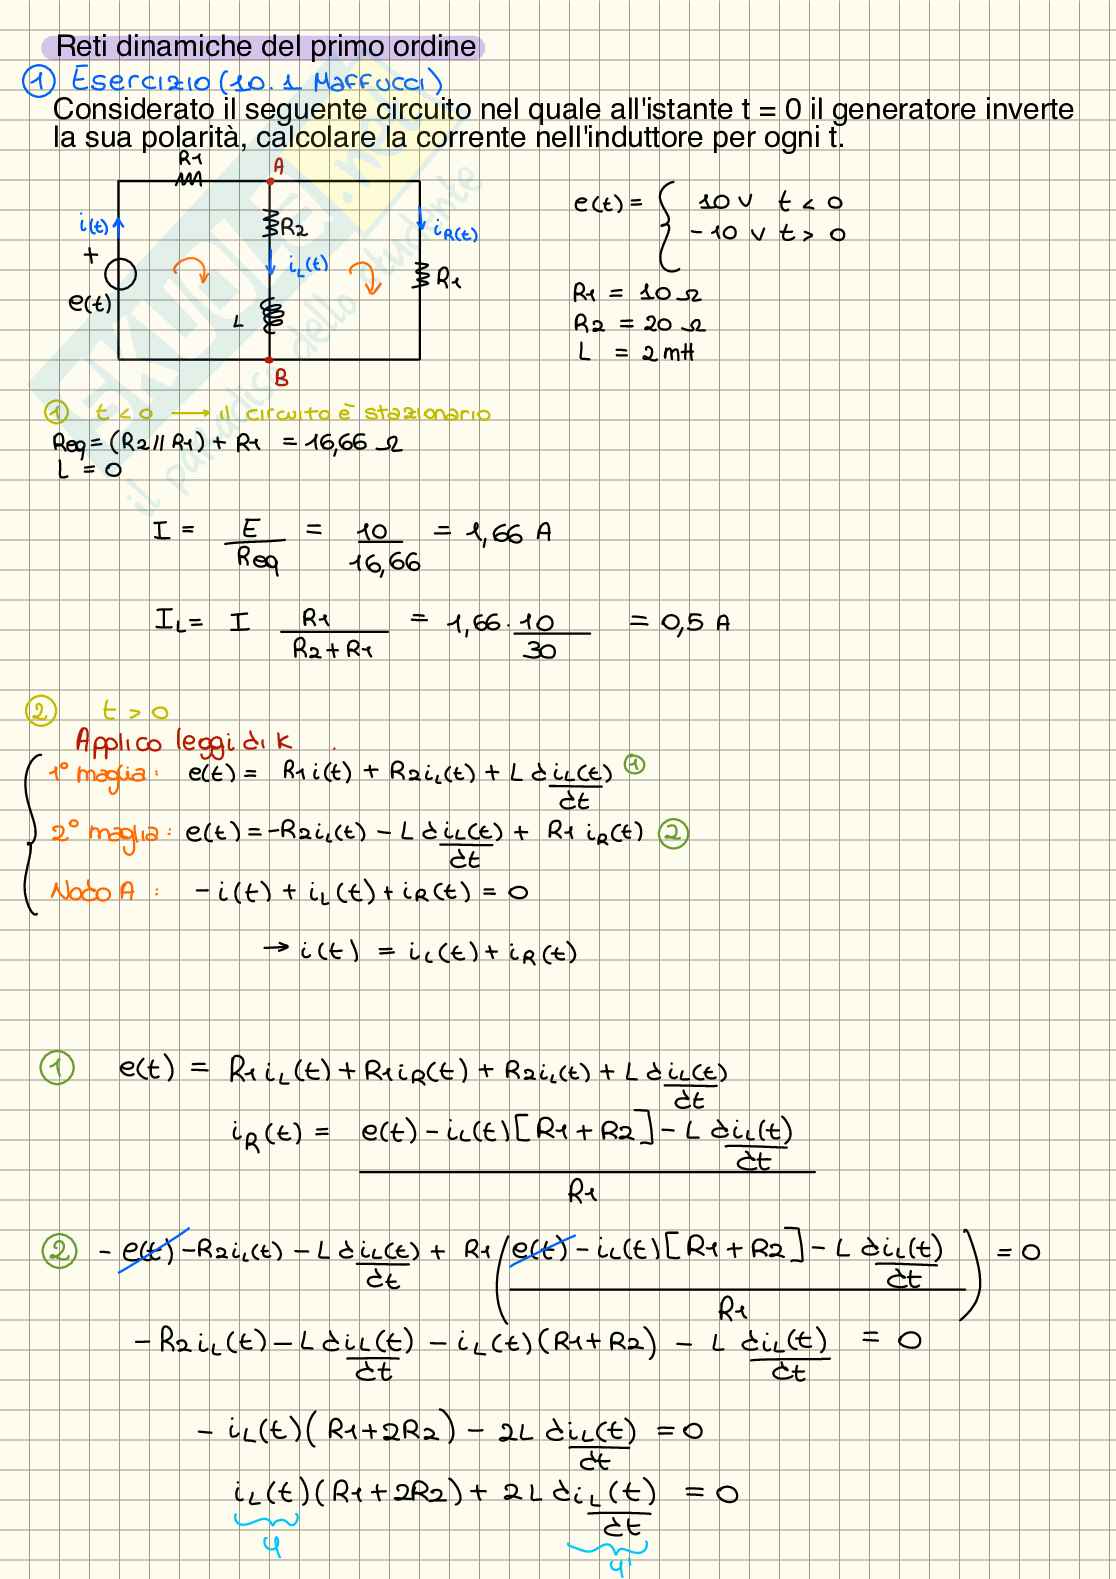 Reti dinamiche del primo ordine
① Esercizio (10.1 Maffucci)
Considerato il seguente circuito nel quale all'istante t = 0 il generatore inverte
la sua polarità, calcolare la corrente nell'induttore per ogni t.
R1 A
i(t) R2 iR(t)
+ iL(t) R1
e(t) L
B
e(t) = { 10 V t < 0
-10 V t > 0
R1 = 10 Ω
R2 = 20 Ω
L = 2 mH
SKUOLA.net
il paradiso dello studente
① t < 0 → il circuito è stazionario
Req = (R2 // R1) + R1 = 16,66 Ω
L = 0
I = E/Req = 10/16,66 = 1,66 A
IL = I R1/(R2 + R1) = 1,66 · 10/30 = 0,5 A
② t > 0
Applico leggi di K.
1° maglia: e(t) = R1 i(t) + R2 iL(t) + L diL(t)/dt ①
2° maglia: e(t) = -R2 iL(t) - L diL(t)/dt + R1 iR(t) ②
Nodo A: - i(t) + iL(t) + iR(t) = 0
→ i(t) = iL(t) + iR(t)
① e(t) = R1 iL(t) + R1 iR(t) + R2 iL(t) + L diL(t)/dt
iR(t) = (e(t) - iL(t)[R1 + R2] - L diL(t)/dt)/R1
② - e(t) - R2 iL(t) - L diL(t)/dt + R1 ((e(t) - iL(t)[R1 + R2] - L diL(t)/dt)/R1) = 0
- R2 iL(t) - L diL(t)/dt - iL(t)(R1 + R2) - L diL(t)/dt = 0
- iL(t)(R1 + 2R2) - 2L diL(t)/dt = 0
iL(t)(R1 + 2R2) + 2L diL(t)/dt = 0
y y'